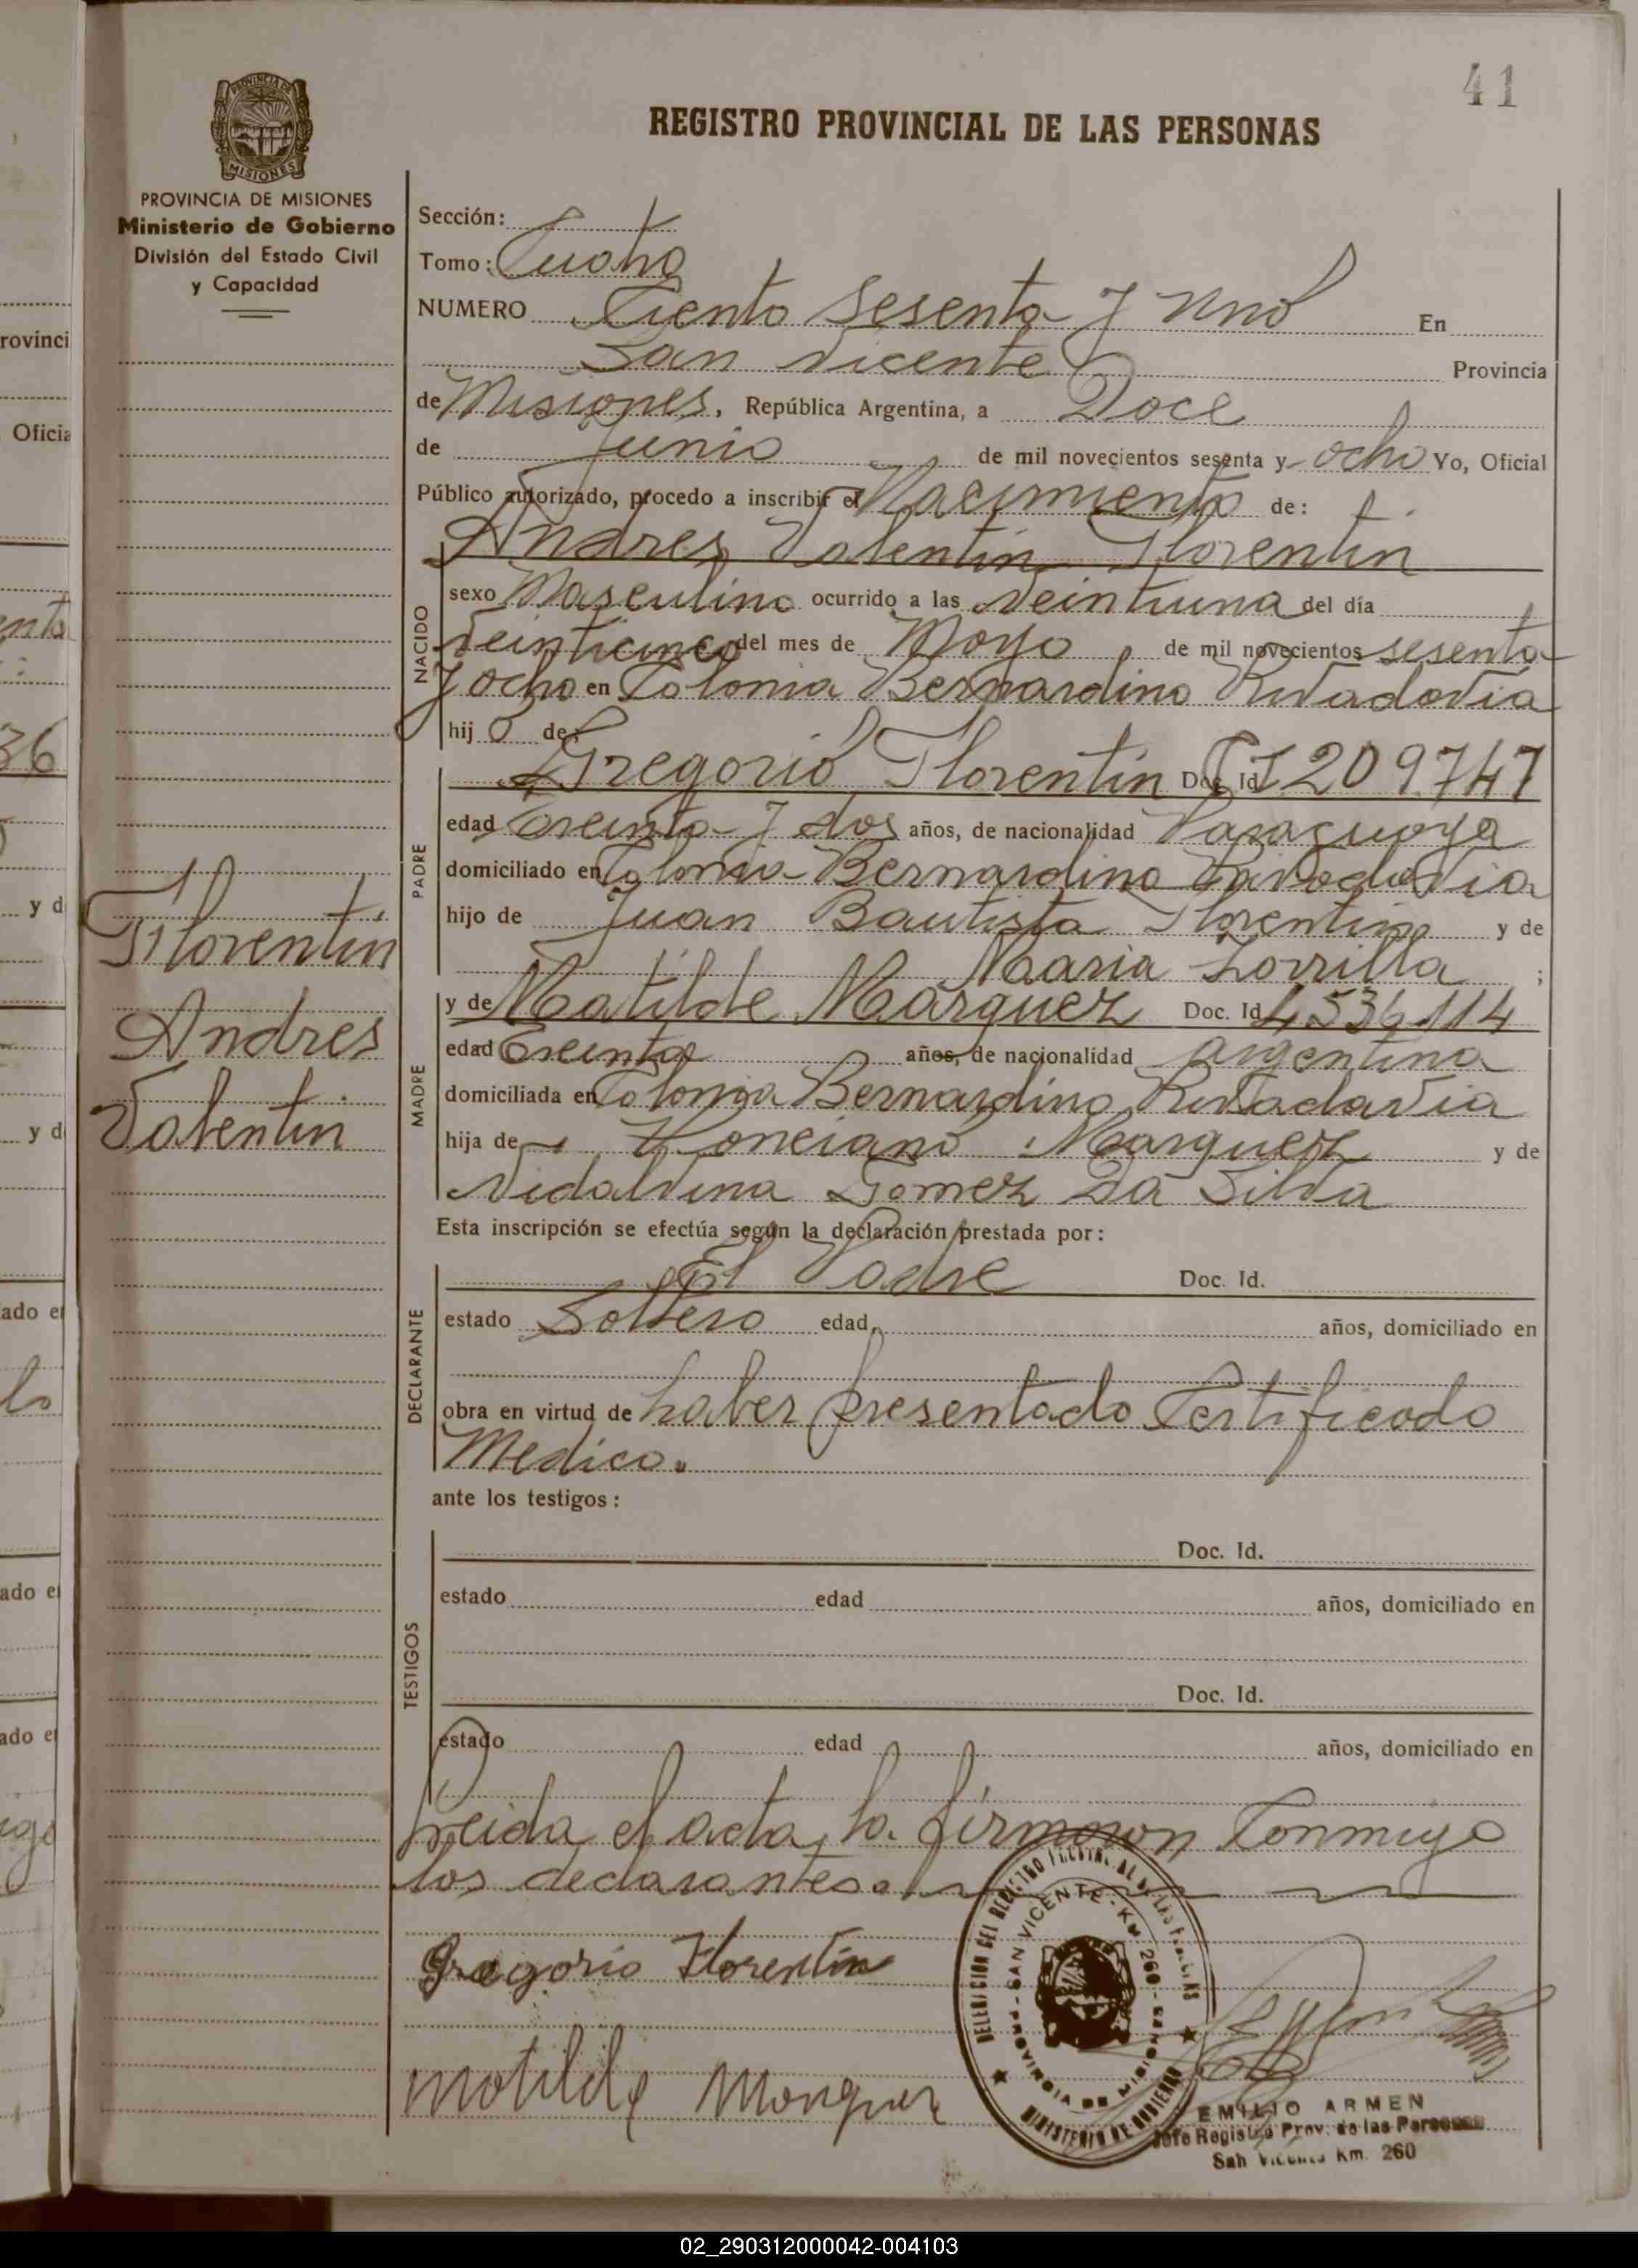 41
REGISTRO PROVINCIAL DE LAS PERSONAS
PROVINCIA DE
MISIONES
PROVINCIA DE MISIONES
Ministerio de Gobierno
División del Estado Civil
y Capacidad
Sección:
Tomo: Cuarto
NUMERO Ciento Sesenta y Uno En
San Vicente Provincia
de Misiones, República Argentina, a Doce
de Junio de mil novecientos sesenta y ocho Yo, Oficial
Público autorizado, procedo a inscribir el Nacimiento de:
Andres Valentin Florentin
NACIDO
sexo Masculino ocurrido a las Veintiuna del día
Veinticinco del mes de Mayo de mil novecientos sesenta
y ocho en Colonia Bernardino Rivadavia
hij o de:
PADRE
Gregorio Florentín Doc. Id. CI 209747
edad treinta y dos años, de nacionalidad Paraguaya
domiciliado en Colonia Bernardino Rivadavia
hijo de Juan Bautista Florentin y de
Maria Zorrilla ;
MADRE
y de Matilde Márquez Doc. Id. 4536114
edad treinta años, de nacionalidad argentina
domiciliada en Colonia Bernardino Rivadavia
hija de Ponciano Marquez y de
Vidalvina Gomez Da Silva
Esta inscripción se efectúa según la declaración prestada por:
DECLARANTE
El Padre Doc. Id.
estado Soltero edad años, domiciliado en
obra en virtud de haber presentado Certificado
Medico.
ante los testigos:
TESTIGOS
Doc. Id.
estado edad años, domiciliado en
Doc. Id.
estado edad años, domiciliado en
Leida el acta, la firmaron Conmigo
los declarantes.
Gregorio Florentín
Matilde Marquez
Florentin
Andres
Valentin
SAN VICENTE - KM 260 - PROVINCIA DE MISIONES
MINISTERIO DE GOBIERNO
EMILIO ARMEN
Jefe Registro Prov. de las Personas
San Vicente Km. 260
rovinci
Oficia
36
y d
y d
ado e
ado e
ado e
02_290312000042-004103